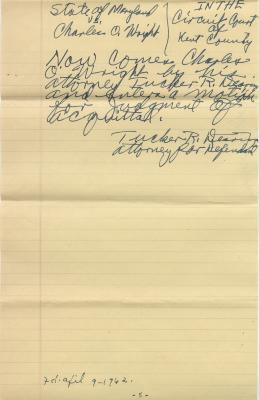 State of Maryland
vs.
Charles O. Wright
IN THE
Circuit Court
of
Kent County
Now Comes Charles
O. Wright by his
attorney Tucker R. Dearing
and enters a motion
for Judgment of
acquittal.
Tucker R. Dearing
attorney for Defendant
Fd. april 9-1962.
-5-